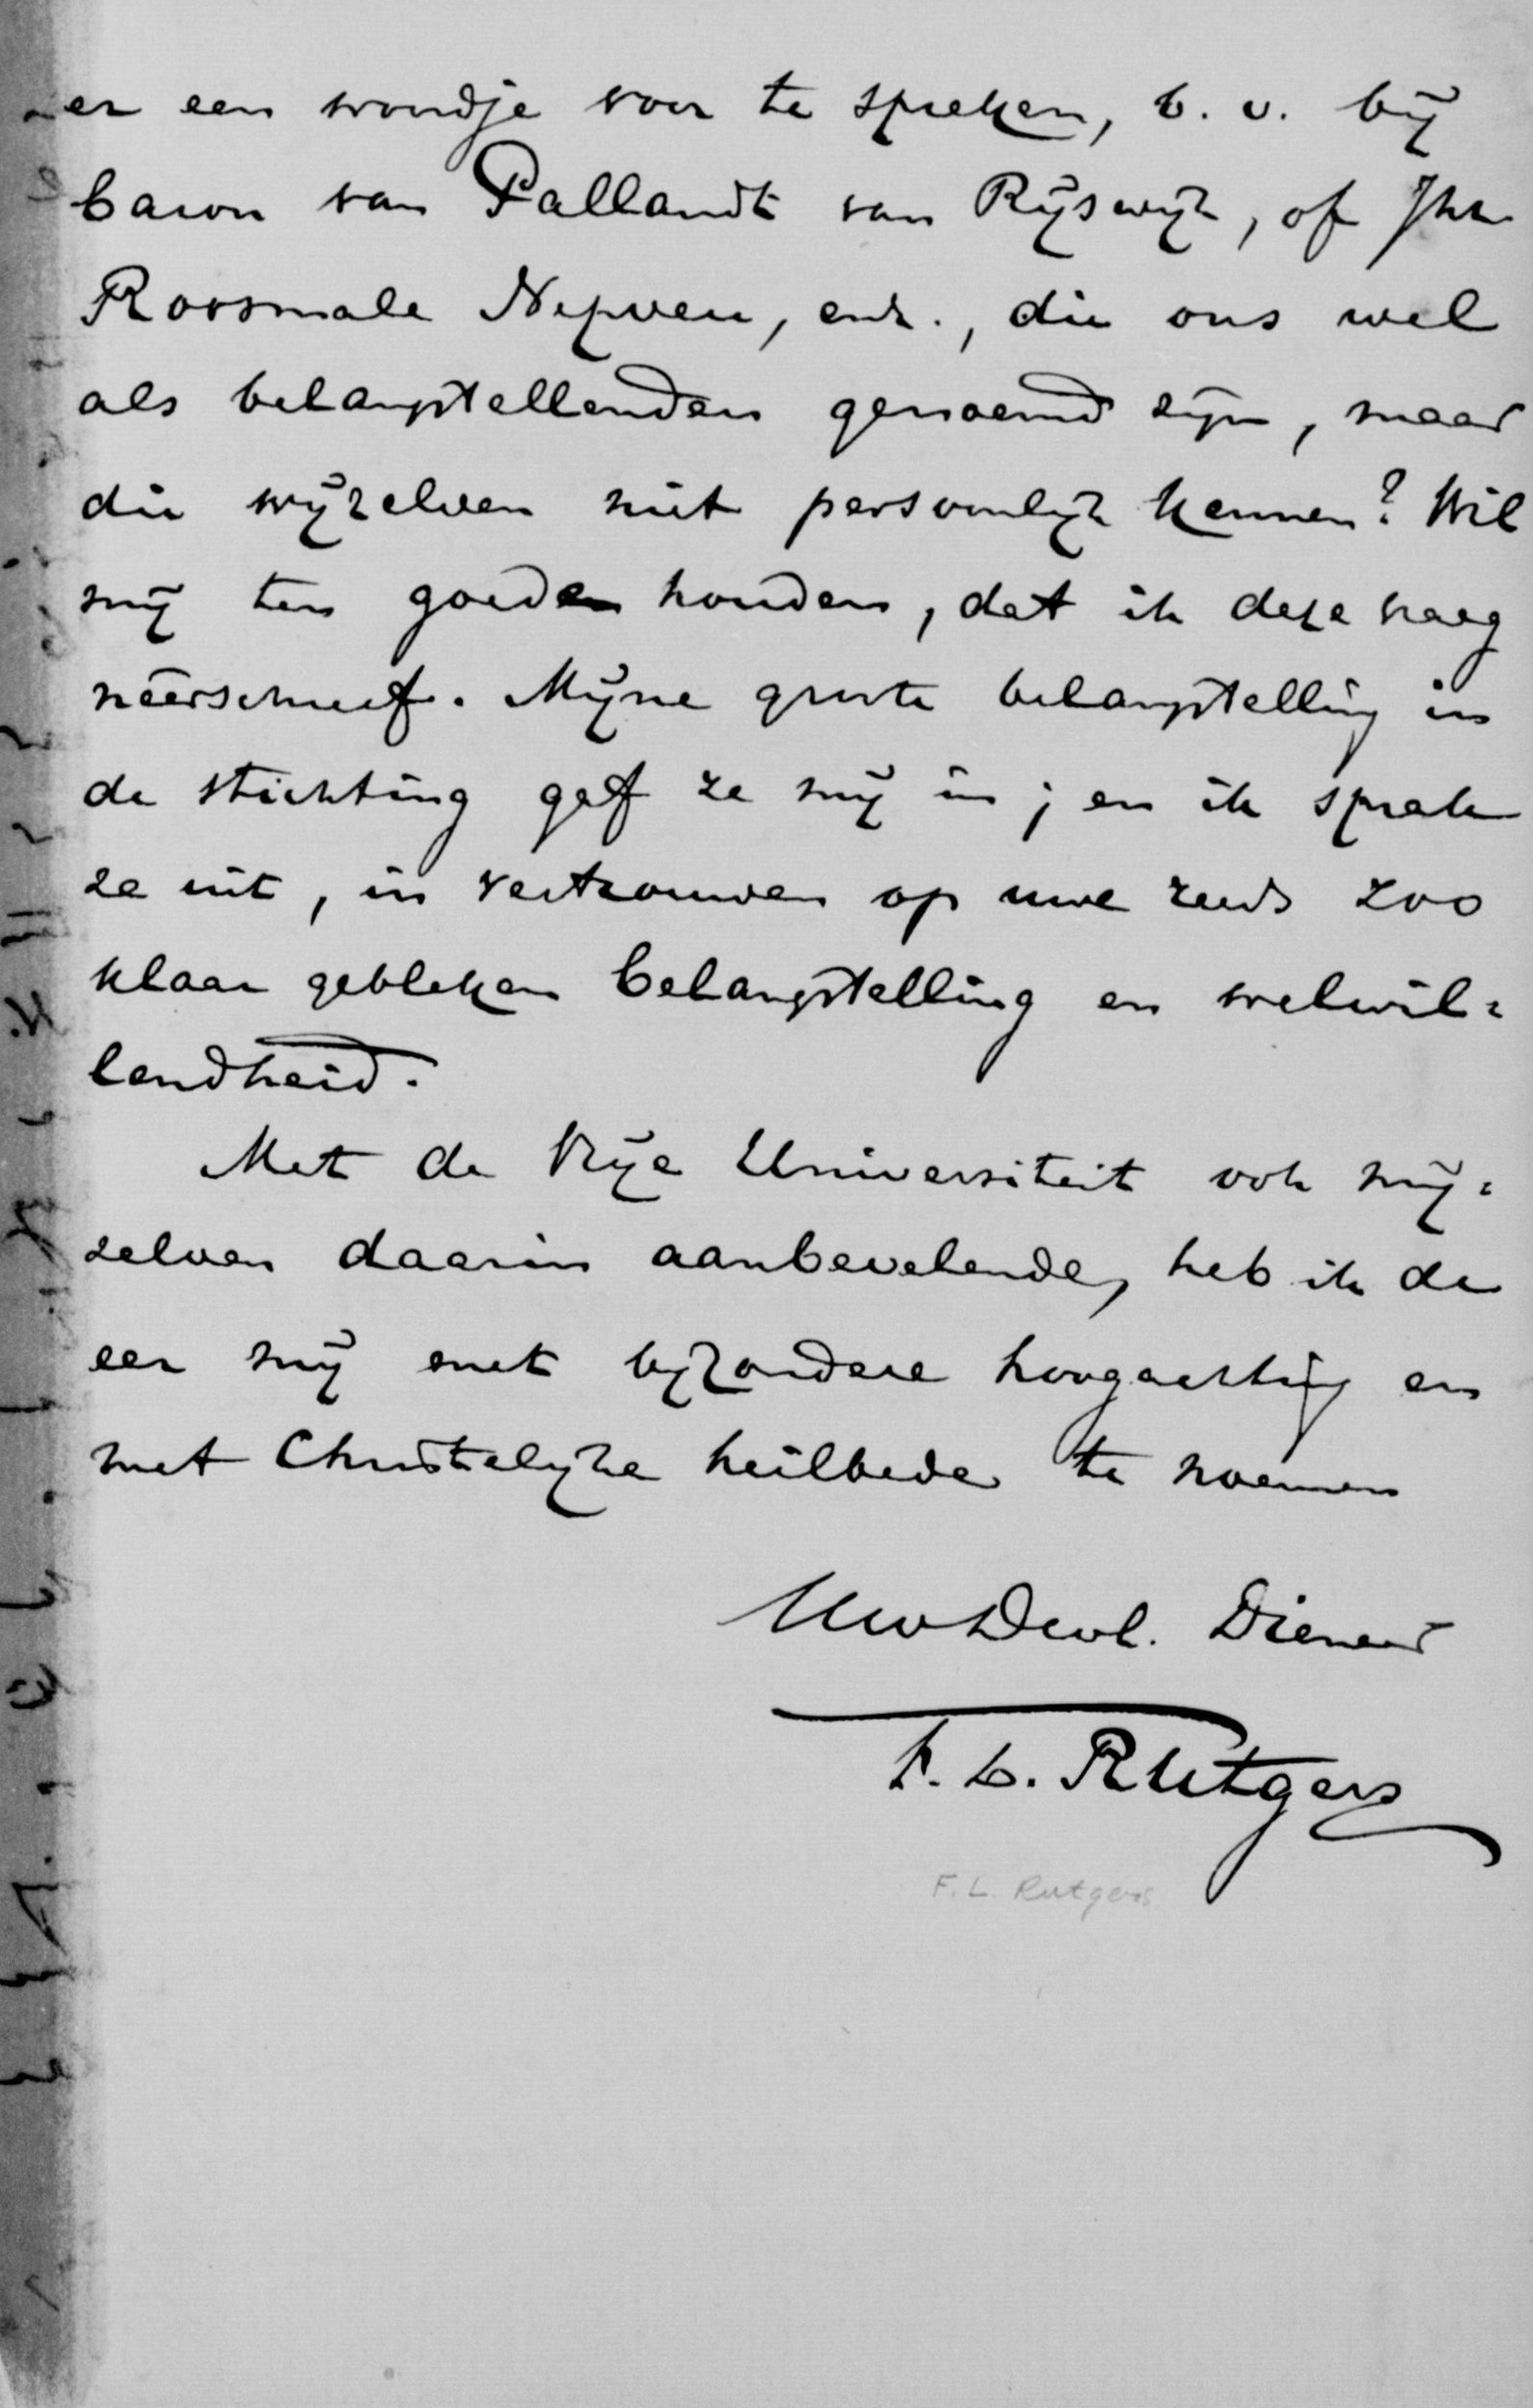 er een woordje voor te spreken, b. v. bij
baron van Pallandt van Rijswijk, of Jhr
Roosmale Nepveu, enz., die ons wel
als belangstellenden genoemd zijn, maar
die wijzelven niet persoonlijk kennen? Wil
mij ten goede houden, dat ik deze vraag
neêrschreef. Mijne groote belangstelling in
de stichting gaf ze mij in; en ik sprak
ze uit, in vertrouwen op uwe reeds zoo
klaar gebleken belangstelling en welwil=
lendheid.
Met de Vrije Universiteit ook mij=
zelven daarin aanbevelende, heb ik de
eer mij met bijzondere hoogachting en
met Christelijke heilbede te noemen
Uw Dw. Dienaar
F. L. Rutgers
F. L. Rutgers